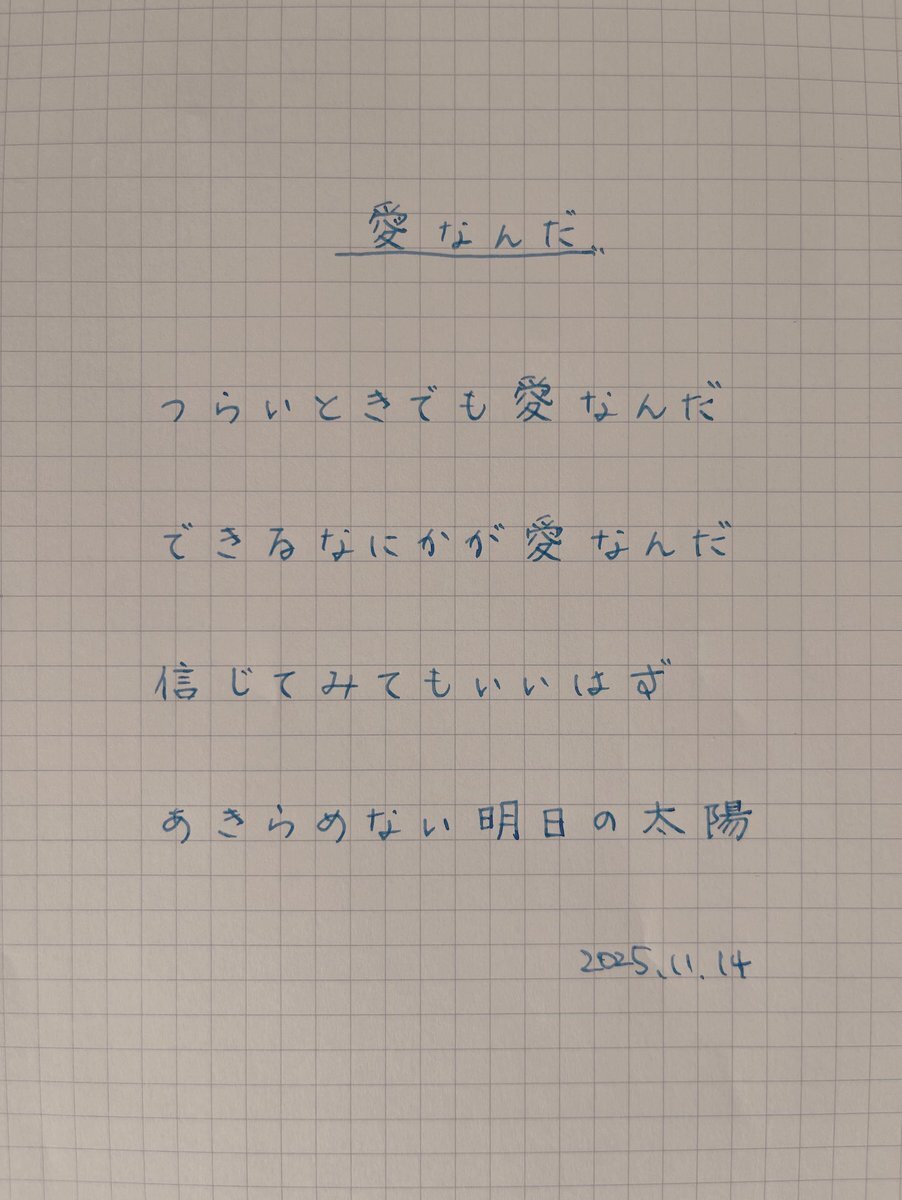 愛なんだ
つらいときでも愛なんだ
できるなにかが愛なんだ
信じてみてもいいはず
あきらめない明日の太陽
2025.11.14